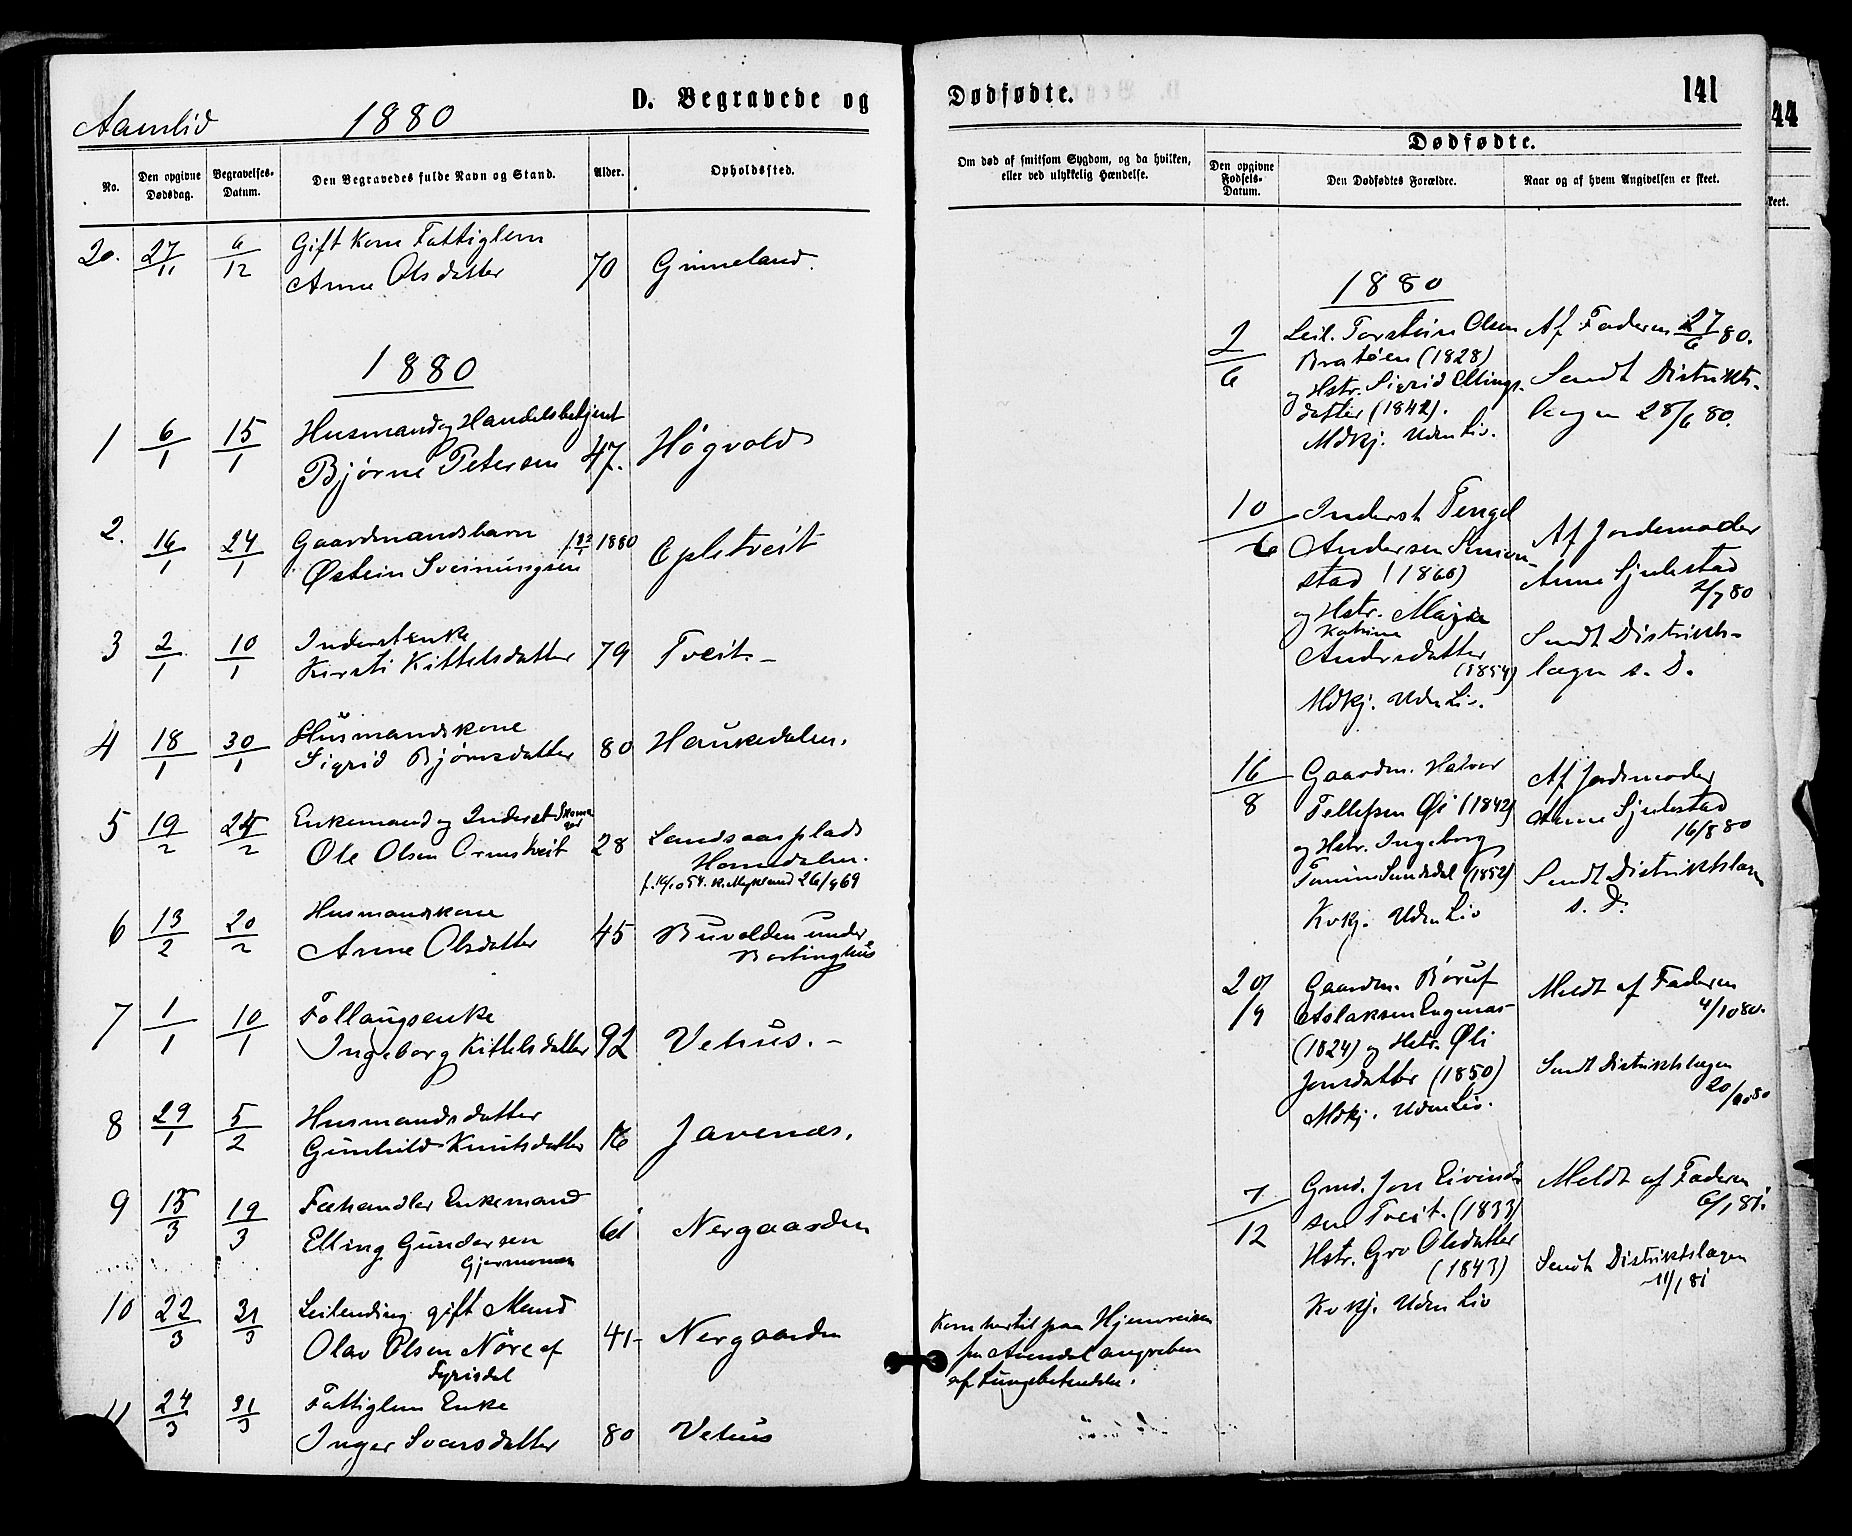 Aamlid 1880 D. Begravede og
No. Den opgivne Dødsdag. Begravelses-Datum. Den Begravedes fulde Navn og Stand. Alder. Opholdssted.
20. 27/11 6/12 Gift Kone Fattiglem
Anne Olsdatter 70 Gimeland.
1880
1 6/1 15/1 Husmand og Handelsbetjent
Bjørne Petersen 47. Høgvold
2. 16/1 24/1 Gaardmandsbarn
Østein Sveinungsen 1880 Eplstveit
3 2/1 10/1 Inderstenke
Kirsti Kittelsdatter 79 Tveit.-
4 18/1 30/1 Husmandskone
Sigrid Bjørnsdatter 80 Haukedalen.
5 19/2 24/2 Enkemand og Inderst
Ole Olsen Ormstveit 28 Landsaasplads
Homdalen.
6 13/2 20/2 Husmandskone
Anne Olsdatter 45 Buvolden under
Bortinghus
7 1/1 10/1 Follaugsenke
Ingeborg Kittelsdatter 92 Vehus.-
8 29/1 5/2 Husmandsdatter
Gunhild Knutsdatter 16 Javenæs.
9 15/3 19/3 Fæhandler Enkemand
Elling Gundersen 61 Nergaarden
10 22/3 31/3 Leilending gift Mand
Olav Olsen Nøre af 41- Nergaarden
Fyrisdal
11 24/3 31/3 Fattiglem Enke
Inger Svensdatter 80 Vehus
Dødfødte. 141
44
Om død af smitsom Sygdom, og da hvilken,
eller ved ulykkelig Hændelse.
Dødfødte.
Den opgivne Fødsels-Datum. Den Dødfødtes Forældre. Naar og af hvem Angivelsen er skeet.
skeet.
Kom hertil paa Hjemreisen
fra Arendal angreben
af Lungebetændelse.
1880
2/6 Leil. Torstein Olsen
Bratøen (1828)
og Hstr. Sigrid Ellings-
datter (1842).
Mdkj. Uden Liv.
Af Faderen 27/6 80.
Sendt Distrikts-
lægen 28/6 80.
10/6 Inderst Tengel
Andersen Simon-
stad (1860)
og Hstr. Maja
Katrine
Andersdatter
(1854)
Mdkj. Uden Liv.
Af Jordemoder
Anne Sjulestad
2/7 80
Sendt Distrikts-
lægen s. D.
16/8 Gaardm. Halvor
Tellefsen Øi (1842)
og Hstr. Ingeborg
(1852)
Kvkj. Uden Liv
Af Jordemoder
Anne Sjulestad
16/8 80
Sendt Distriktslægen
s. D.
20/9 Gaardm. Børuf
Aslaksen Engenæs-
(1824) og Hstr. Øli
Jonsdatter (1850)
Mdkj. Uden Liv.
Meldt af Faderen
4/10 80.
Sendt Distriktslægen
20/10 80
7/12 Gmd. Jon Eivind-
sen Tveit. (1833)
Hstr. Gro Olsdatter
(1843)
Kvkj. Uden Liv
Meldt af Faderen
6/1 81.
Sendt Distriktslægen
11/1 81